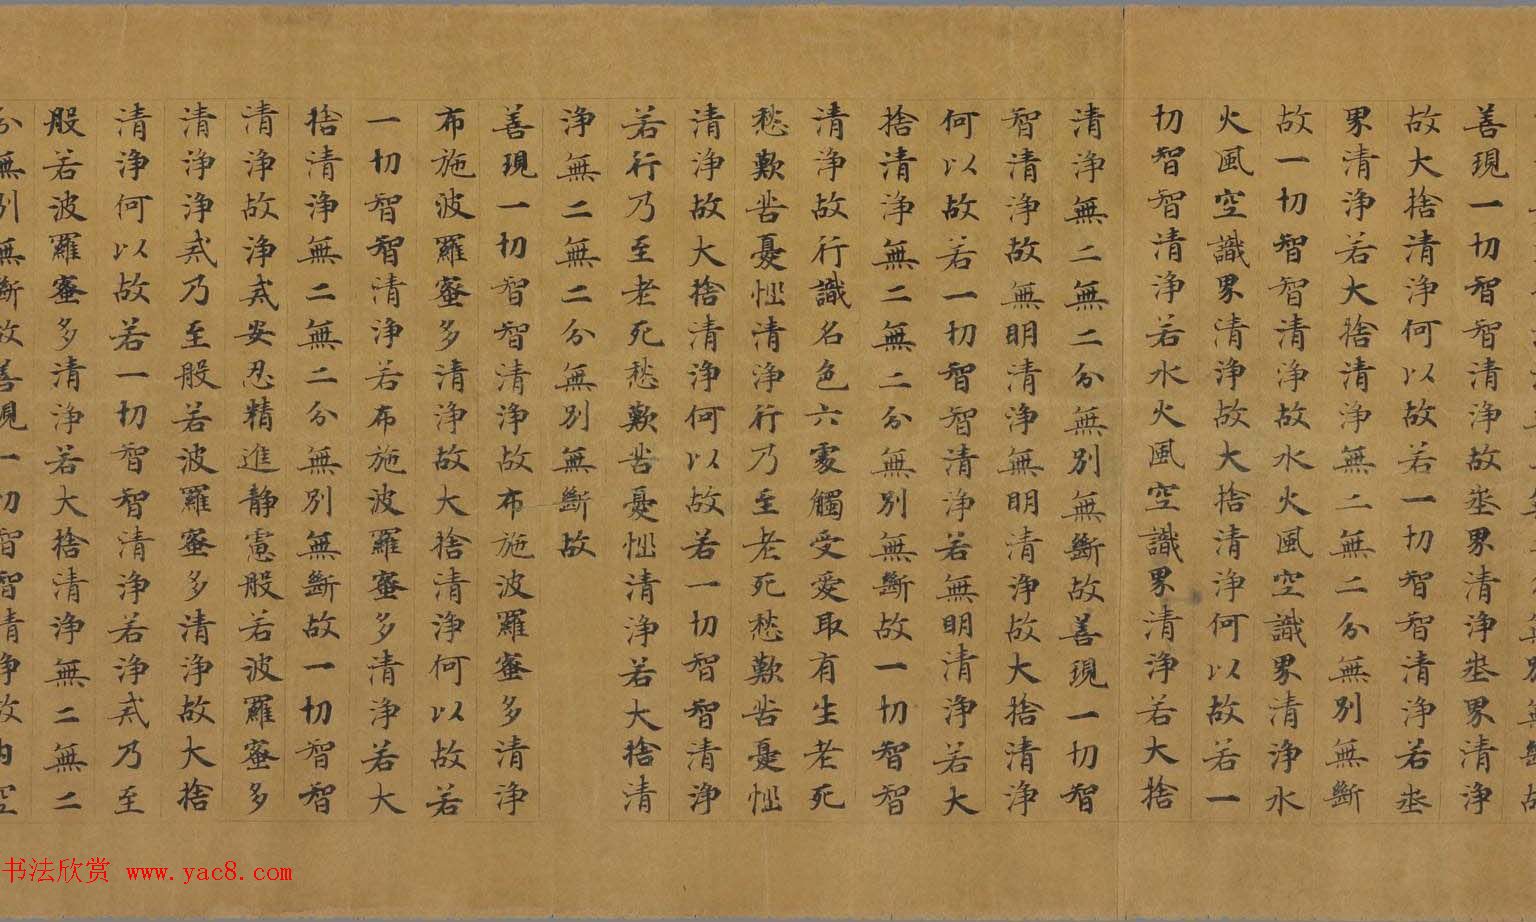 善現一切智智清淨故地界清淨地界清淨
故大捨清淨何以故若一切智智清淨若地
界清淨若大捨清淨無二無二分無別無斷
故一切智智清淨故水火風空識界清淨水
火風空識界清淨故大捨清淨何以故若一
切智智清淨若水火風空識界清淨若大捨
清淨無二無二分無別無斷故善現一切智
智清淨故無明清淨無明清淨故大捨清淨
何以故若一切智智清淨若無明清淨若大
捨清淨無二無二分無別無斷故一切智智
清淨故行識名色六處觸受愛取有生老死
愁歎苦憂惱清淨行乃至老死愁歎苦憂惱
清淨故大捨清淨何以故若一切智智清淨
若行乃至老死愁歎苦憂惱清淨若大捨清
淨無二無二分無別無斷故
善現一切智智清淨故布施波羅蜜多清淨
布施波羅蜜多清淨故大捨清淨何以故若
一切智智清淨若布施波羅蜜多清淨若大
捨清淨無二無二分無別無斷故一切智智
清淨故淨戒安忍精進靜慮般若波羅蜜多
清淨淨戒乃至般若波羅蜜多清淨故大捨
清淨何以故若一切智智清淨若淨戒乃至
般若波羅蜜多清淨若大捨清淨無二無二
分無別無斷故善現一切智智清淨故內空
书法欣赏 www.yac8.com